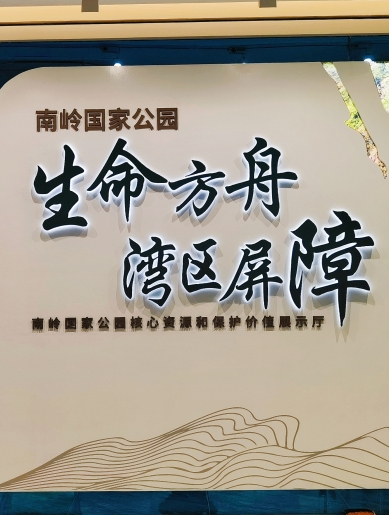 南岭国家公园
生命方舟
湾区屏障
南岭国家公园核心资源和保护价值展示厅